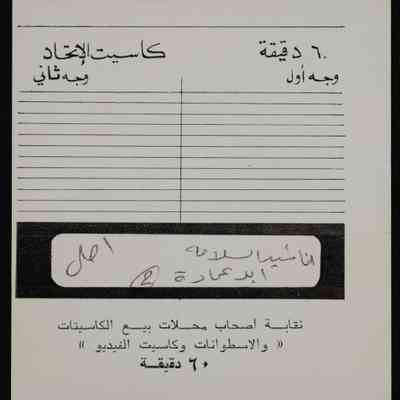 ٦٠ دقيقة كاسيت الإتحاد
وجه أول وجه ثاني
اناشيد السلامه اصل
ابو عمارة ②
نقابة أصحاب محلات بيع الكاسيتات
« والاسطوانات وكاسيت الفيديو »
٦٠ دقيقة